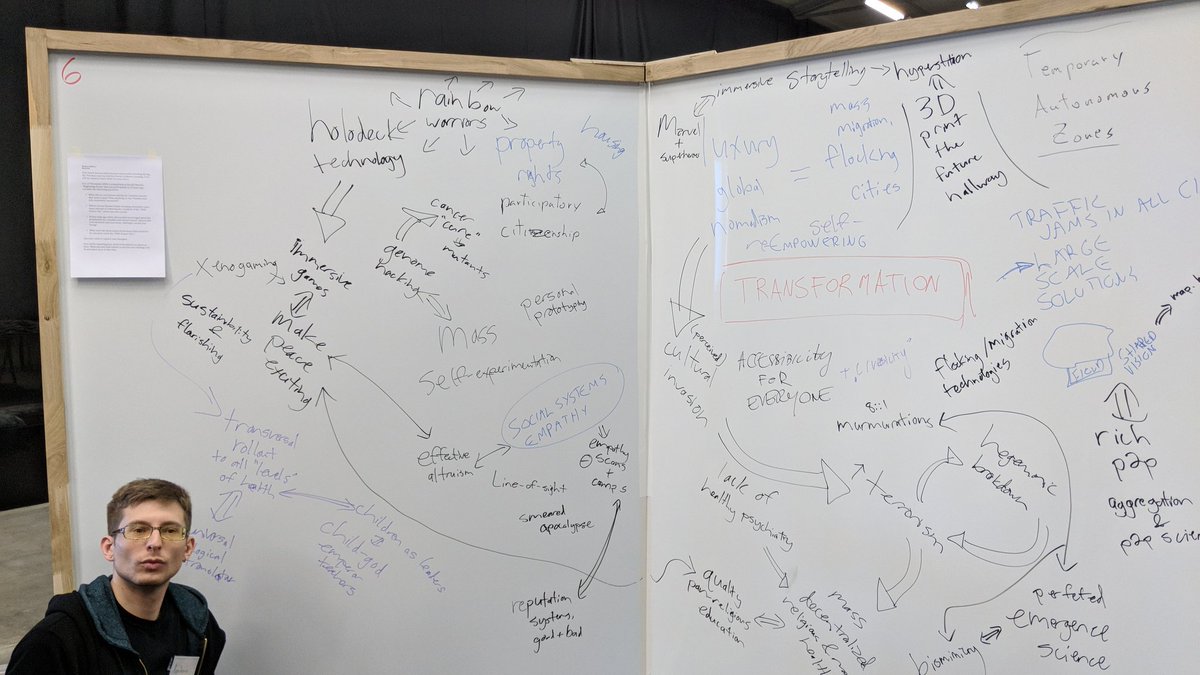 6
rainbow
warriors
holodeck
technology
property
rights
housing
participatory
citizenship
cancer
"cure"
mutants
genome
hacking
Xenogaming
Immersive
games
Sustainability
&
flarishing
Make
peace
exciting
personal
prototyping
Mass
Self-experimentation
SOCIAL SYSTEMS
EMPATHY
effective
altruism
Line-of-sight
smeared
apocalypse
empathy
scans
camps
transversal
rollout
to all "levels"
of health
children as leaders
child-god
emperor
teachers
translator
reputation
systems,
good + bad
immersive storytelling
hyperstition
Marvel
+
superheroes
luxury
global
nomadism
=
mass
migration,
flocking
cities
self-
reEMPOWERING
3D
print
the
future
hallway
Temporary
Autonomous
Zones
TRANSFORMATION
TRAFFIC
JAMS IN ALL
LARGE
SCALE
SOLUTIONS
(perceived)
cultural
invasion
ACCESSIBILITY
FOR
EVERYONE
+ "Livability"
flocking/migration
technologies
CLOUD
SHARED
VISION
murmurations
hegemonic
breakdown
rich
p2p
aggregation
&
p2p
lack of
healthy psychiatry
↑ terrorism
quality
religious
education
mass
decentralized
religion &
health
perfected
emergence
science
biomimicry